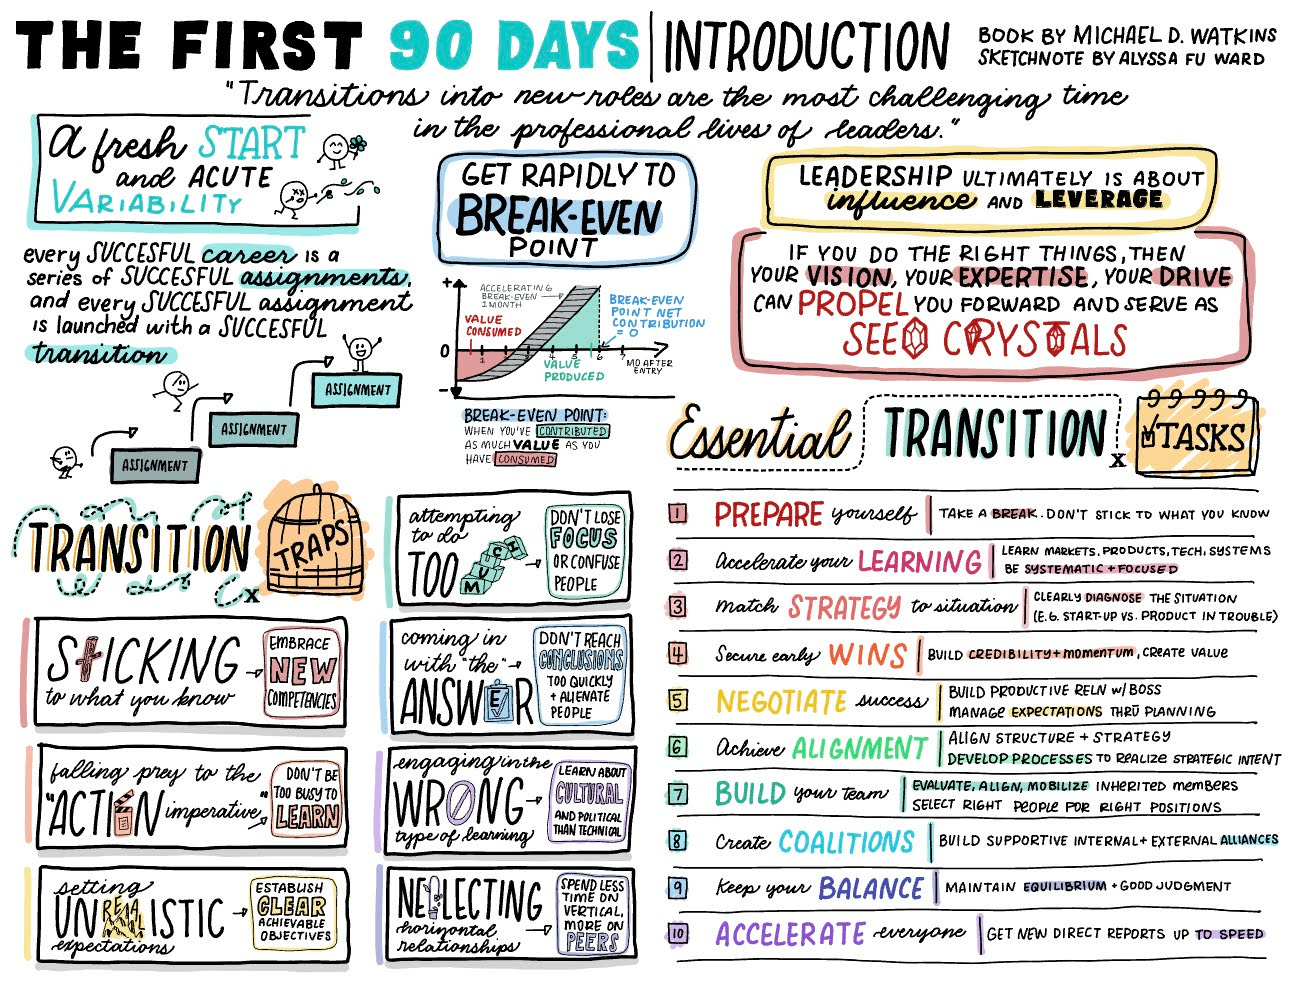 THE FIRST 90 DAYS | INTRODUCTION
BOOK BY MICHAEL D. WATKINS
SKETCHNOTE BY ALYSSA FU WARD
"Transitions into new roles are the most challenging time
in the professional lives of leaders."
A fresh START
and ACUTE
VARIABILITY
every SUCCESFUL career is a
series of SUCCESFUL assignments,
and every SUCCESFUL assignment
is launched with a SUCCESFUL
transition
ASSIGNMENT
ASSIGNMENT
ASSIGNMENT
GET RAPIDLY TO
BREAK-EVEN
POINT
+
ACCELERATING
BREAK-EVEN
1 MONTH
VALUE
CONSUMED
BREAK-EVEN
POINT NET
CONTRIBUTION
= 0
0
1
4
5
6
7
MO AFTER
ENTRY
VALUE
PRODUCED
-
BREAK-EVEN POINT:
WHEN YOU'VE CONTRIBUTED
AS MUCH VALUE AS YOU
HAVE CONSUMED
LEADERSHIP ULTIMATELY IS ABOUT
influence AND LEVERAGE
IF YOU DO THE RIGHT THINGS, THEN
YOUR VISION, YOUR EXPERTISE, YOUR DRIVE
CAN PROPEL YOU FORWARD AND SERVE AS
SEED CRYSTALS
TRANSITION TRAPS
STICKING
to what you know
EMBRACE
NEW
COMPETENCIES
falling prey to the
"ACTION imperative"
DON'T BE
TOO BUSY TO
LEARN
setting
UNREALISTIC
expectations
ESTABLISH
CLEAR
ACHIEVABLE
OBJECTIVES
attempting
to do
TOO MUCH
DON'T LOSE
FOCUS
OR CONFUSE
PEOPLE
coming in
with "the"
ANSWER
DON'T REACH
CONCLUSIONS
TOO QUICKLY
+ ALIENATE
PEOPLE
engaging in the
WRONG
type of learning
LEARN ABOUT
CULTURAL
AND POLITICAL
THAN TECHNICAL
NEGLECTING
horizontal
relationships
SPEND LESS
TIME ON
VERTICAL,
MORE ON
PEERS
Essential TRANSITION TASKS
1 PREPARE yourself | TAKE A BREAK. DON'T STICK TO WHAT YOU KNOW
2 Accelerate your LEARNING | LEARN MARKETS, PRODUCTS, TECH, SYSTEMS
BE SYSTEMATIC + FOCUSED
3 Match STRATEGY to situation | CLEARLY DIAGNOSE THE SITUATION
(E.G. START-UP VS. PRODUCT IN TROUBLE)
4 Secure early WINS | BUILD CREDIBILITY + MOMENTUM, CREATE VALUE
5 NEGOTIATE success | BUILD PRODUCTIVE RELN W/ BOSS
MANAGE EXPECTATIONS THRU PLANNING
6 Achieve ALIGNMENT | ALIGN STRUCTURE + STRATEGY
DEVELOP PROCESSES TO REALIZE STRATEGIC INTENT
7 BUILD your team | EVALUATE, ALIGN, MOBILIZE INHERITED MEMBERS
SELECT RIGHT PEOPLE FOR RIGHT POSITIONS
8 Create COALITIONS | BUILD SUPPORTIVE INTERNAL + EXTERNAL ALLIANCES
9 Keep your BALANCE | MAINTAIN EQUILIBRIUM + GOOD JUDGMENT
10 ACCELERATE everyone | GET NEW DIRECT REPORTS UP TO SPEED